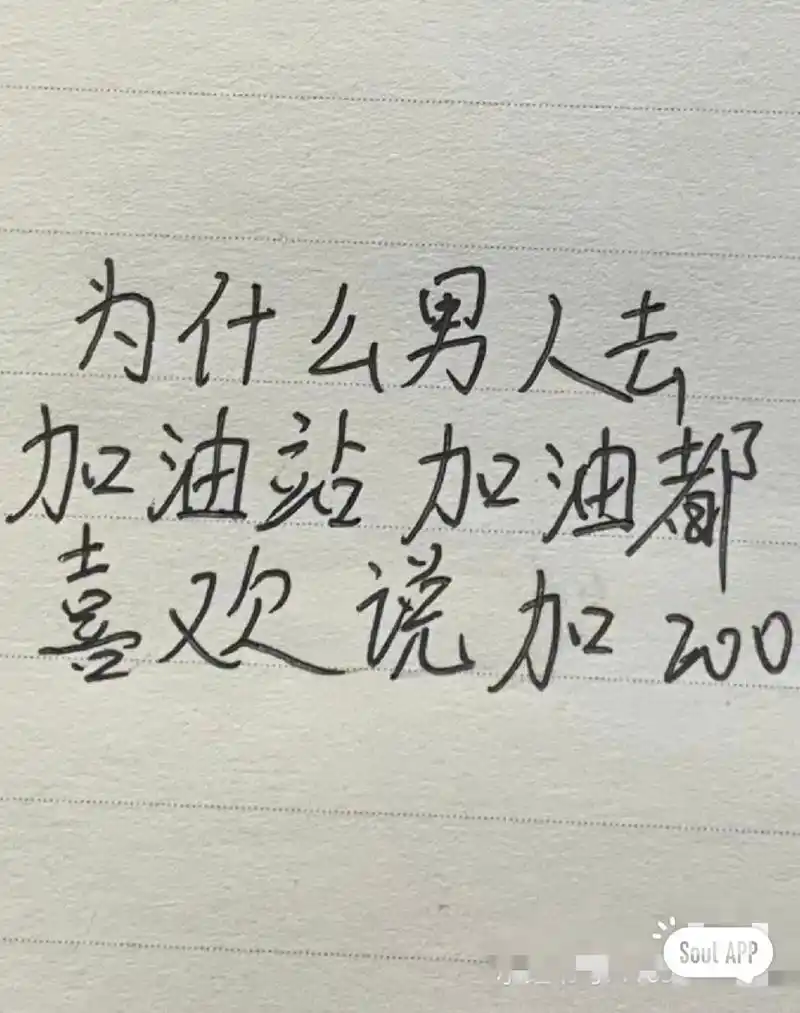 为什么男人去
加油站加油都
喜欢说加200
Soul APP